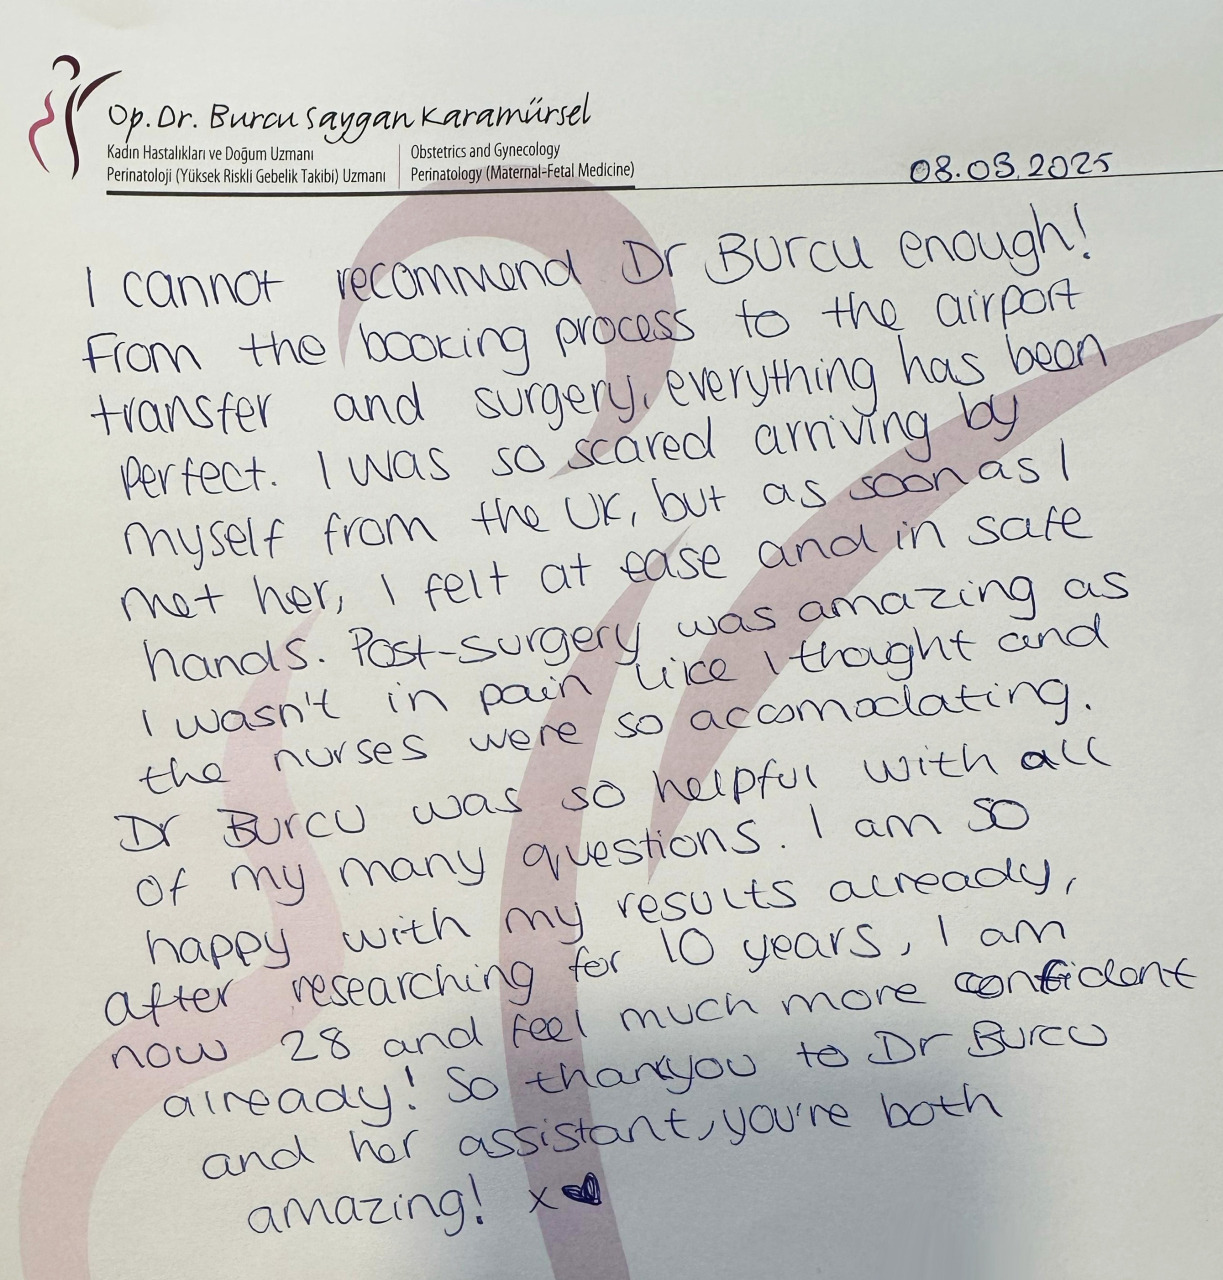 Op. Dr. Burcu Saygan Karamürsel
Kadın Hastalıkları ve Doğum Uzmanı
Perinatoloji (Yüksek Riskli Gebelik Takibi) Uzmanı
Obstetrics and Gynecology
Perinatology (Maternal-Fetal Medicine)
08.03.2025
I cannot recommend Dr Burcu enough!
From the booking process to the airport
transfer and surgery, everything has been
perfect. I was so scared arriving by
myself from the UK, but as soon as I
met her, I felt at ease and in safe
hands. Post-surgery was amazing as
I wasn't in pain like I thought and
the nurses were so accomodating.
Dr Burcu was so helpful with all
of my many questions. I am so
happy with my results already,
after researching for 10 years, I am
now 28 and feel much more confident
already! So thankyou to Dr Burcu
and her assistant, you're both
amazing! x